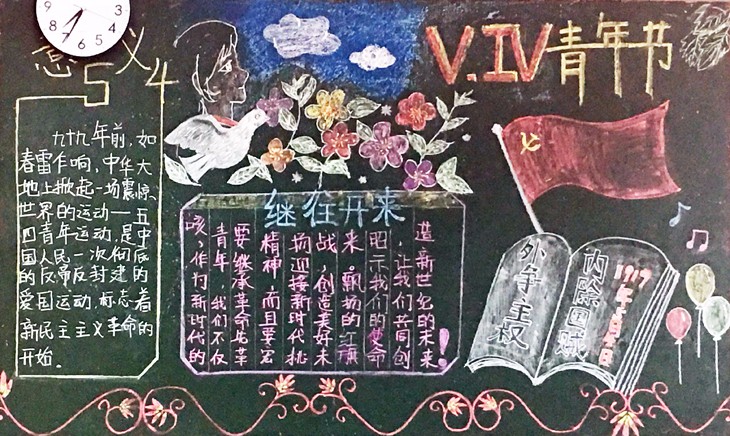 义
5 4
V.IV青年节
九十九年前，如
春雷乍响，中华大
地上掀起一场震惊
世界的运动——五
四青年运动，是中
国人民一次彻底
的反帝反封建的
爱国运动，标志着
新民主主义革命的
开始。
继往开来
作为新时代的
青年，我们不仅
要继承革命先革
精神，而且要宏
扬迎接新时代挑
战，创造美好未
来。飘扬的红旗
昭示我们的使命
，让我们共同创
造新世纪的未来！
外争主权
内除国贼
1919年5月4日
9 8 7 6 5 4 3